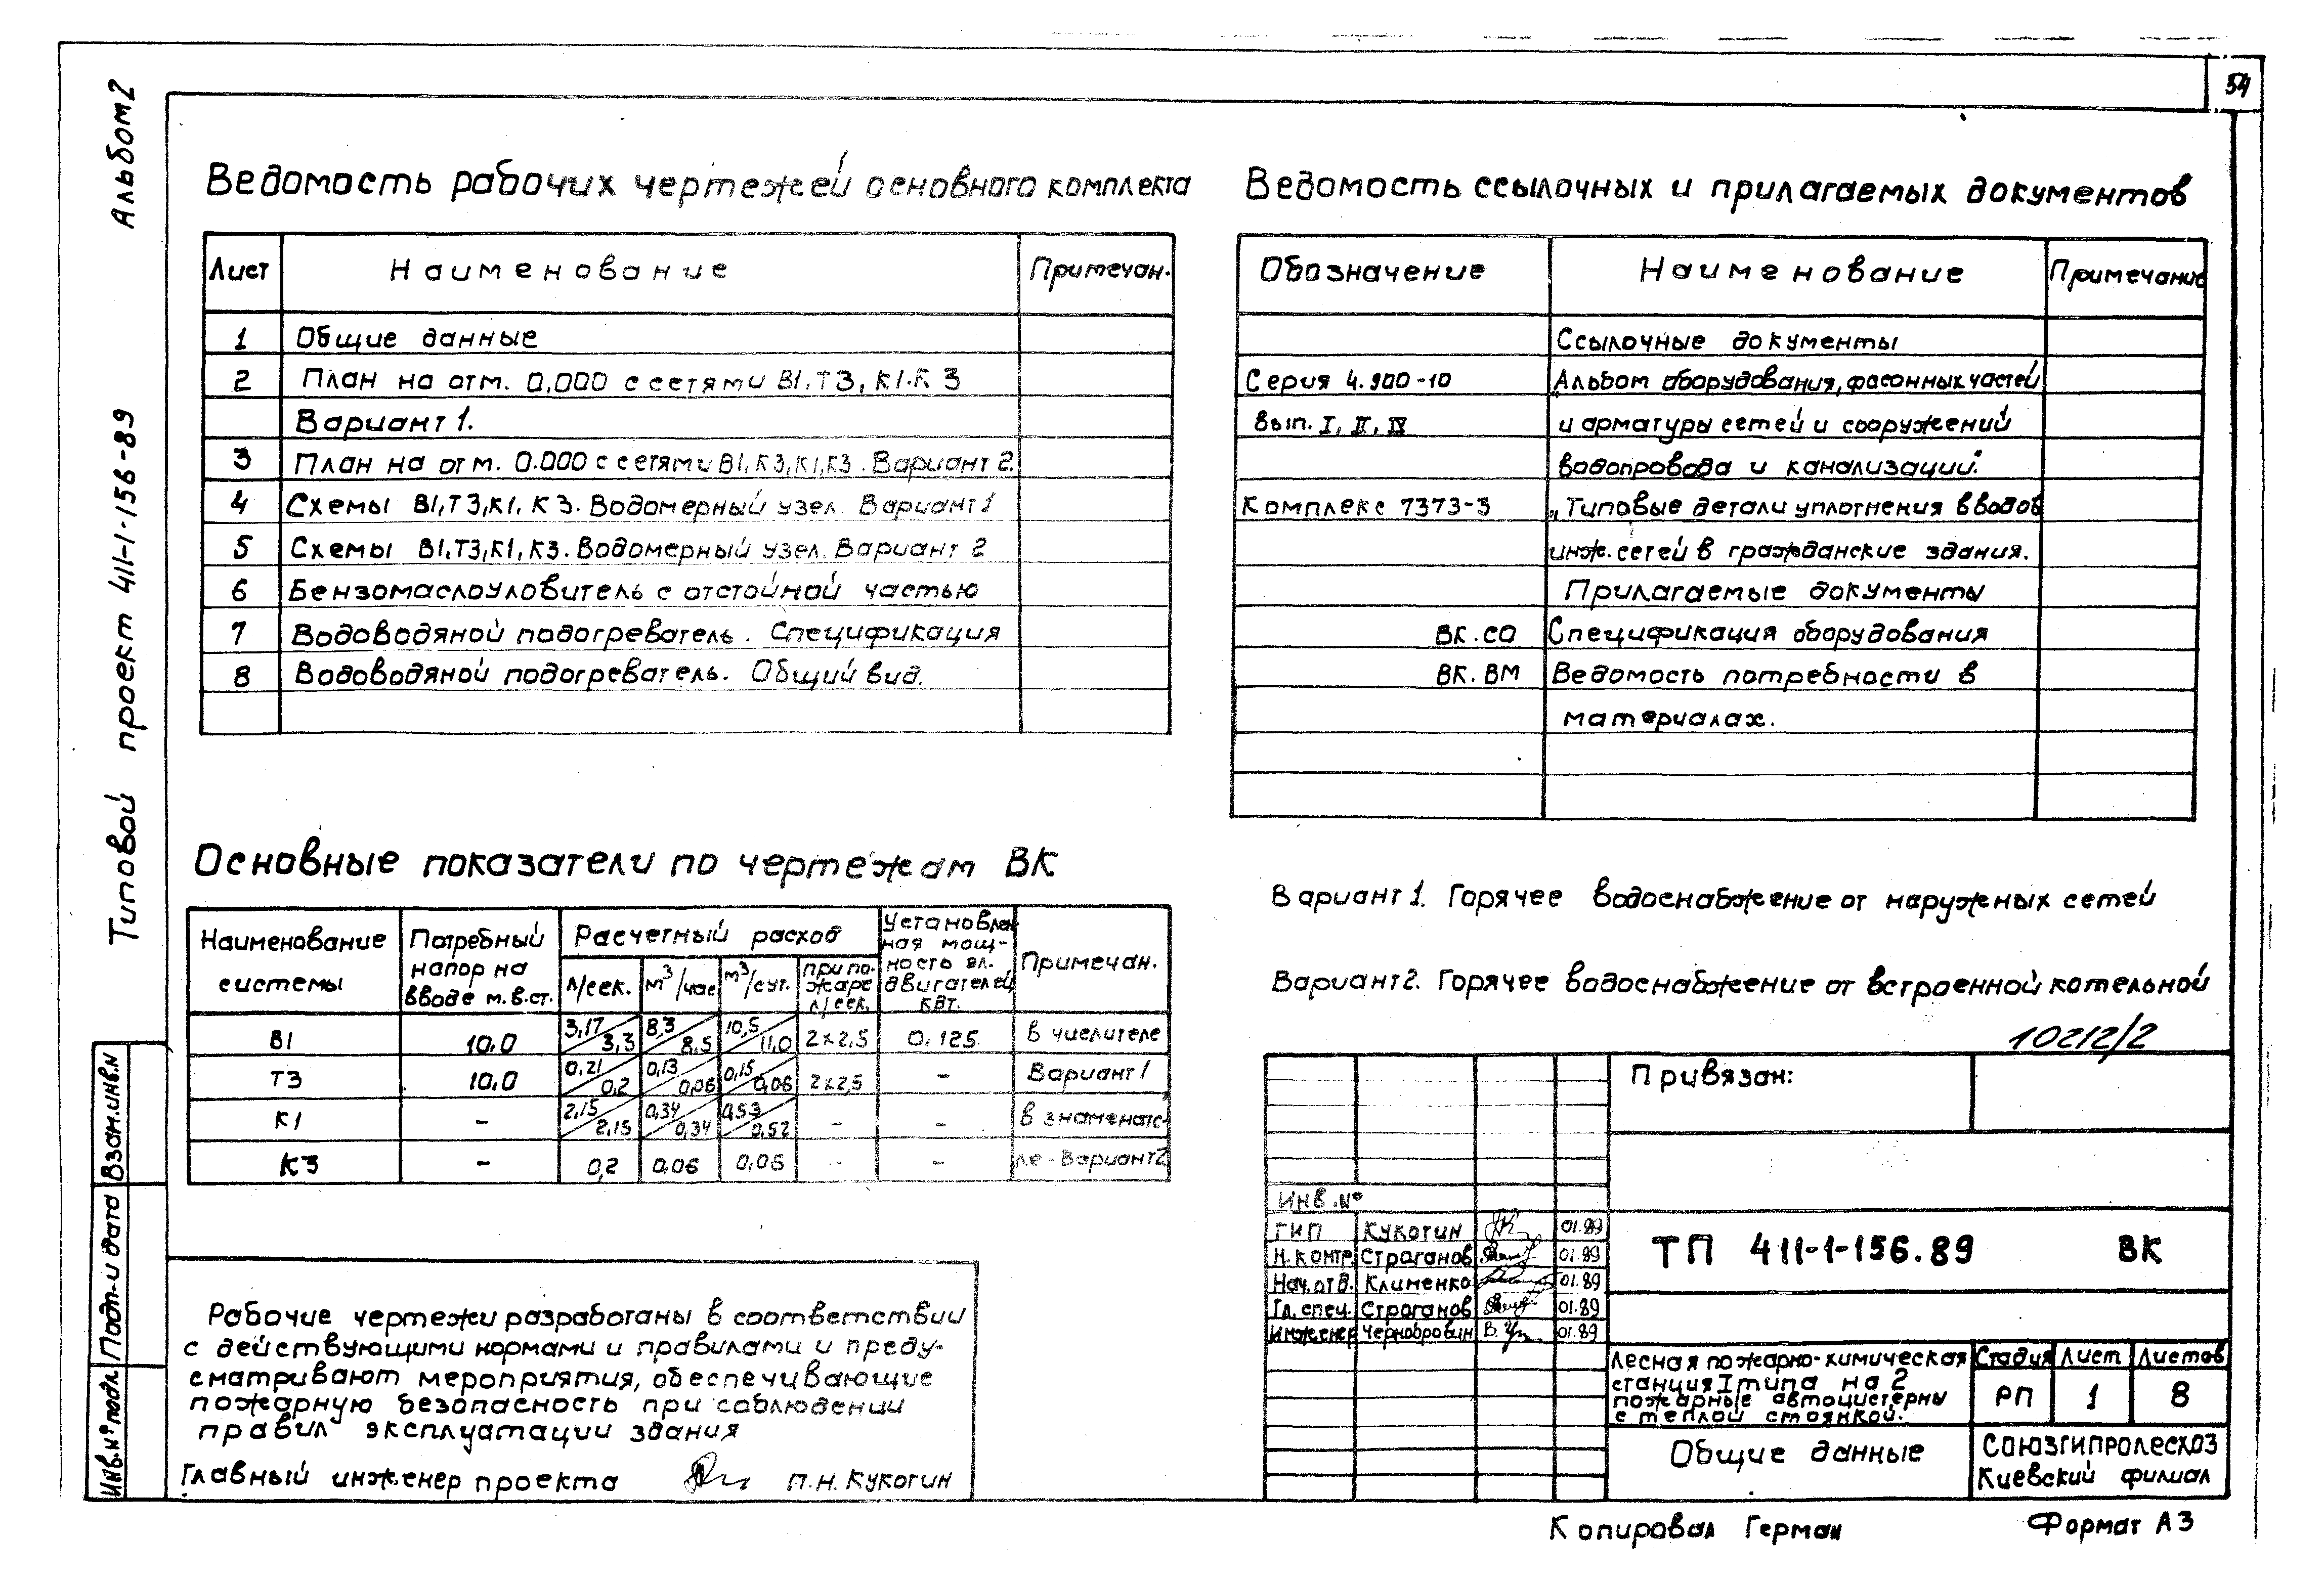 54
Альбом 2
Типовой проект 411-1-156-89
Взам.инв.н
Подп-и дата
Инв.№ подл.
Ведомость рабочих чертежей основного комплекта
Лист Наименование Примечан.
1 Общие данные
2 План на отм. 0,000 с сетями В1,Т3, К1.К3
Вариант 1.
3 План на отм. 0.000 с сетями В1,К3,К1,К3. Вариант 2.
4 Схемы В1,Т3,К1, К3. Водомерный узел. Вариант 1
5 Схемы В1,Т3,К1,К3. Водомерный узел. Вариант 2
6 Бензомаслоуловитель с отстойной частью
7 Водоводяной подогреватель. Спецификация
8 Водоводяной подогреватель. Общий вид.
Ведомость ссылочных и прилагаемых документов
Обозначение Наименование Примечание
Ссылочные документы
Серия 4.900-10 „Альбом оборудования, фасонных частей
Вып. I, II, IV и арматуры сетей и сооружений
водопровода и канализации."
Комплекс 7373-3 „Типовые детали уплотнения вводов
инж. сетей в гражданские здания.
Прилагаемые документы
ВК.СО Спецификация оборудования
ВК.ВМ Ведомость потребности в
материалах.
Основные показатели по чертежам ВК
Наименование системы Потребный напор на вводе м.в.ст. Расчетный расход Установленная мощность эл. двигателей, квт. Примечан.
л/сек. м³/час м³/сут. при пожаре л/сек.
В1 10,0 3,17/3,3 8,3/8,5 10,5/11,0 2×2,5 0,125 в числителе
Т3 10,0 0,21/0,2 0,13/0,06 0,15/0,06 2×2,5 – Вариант 1
К1 – 2,15/2,15 0,34/0,34 0,53/0,52 – – в знаменате-
К3 – 0,2 0,06 0,06 – – ле-Вариант 2
Вариант 1. Горячее водоснабжение от наружных сетей
Вариант 2. Горячее водоснабжение от встроенной котельной
10212/2
Рабочие чертежи разработаны в соответствии
с действующими нормами и правилами и преду-
сматривают мероприятия, обеспечивающие
пожарную безопасность при соблюдении
правил эксплуатации здания
Главный инженер проекта П.Н. Кукогин
Привязан:
Инв.№
ГИП Кукогин 01.89
Н.контр. Строганов 01.89
Нач.отд. Клименко 01.89
Гл. спец. Строганов 01.89
Инженер Чернобровин 01.89
ТП 411-1-156.89 ВК
Лесная пожарно-химическая
станция I типа на 2
пожарные автоцистерны
с теплой стоянкой.
Стадия Лист Листов
РП 1 8
Общие данные
Союзгипролесхоз
Киевский филиал
Копировал Герман
Формат А3